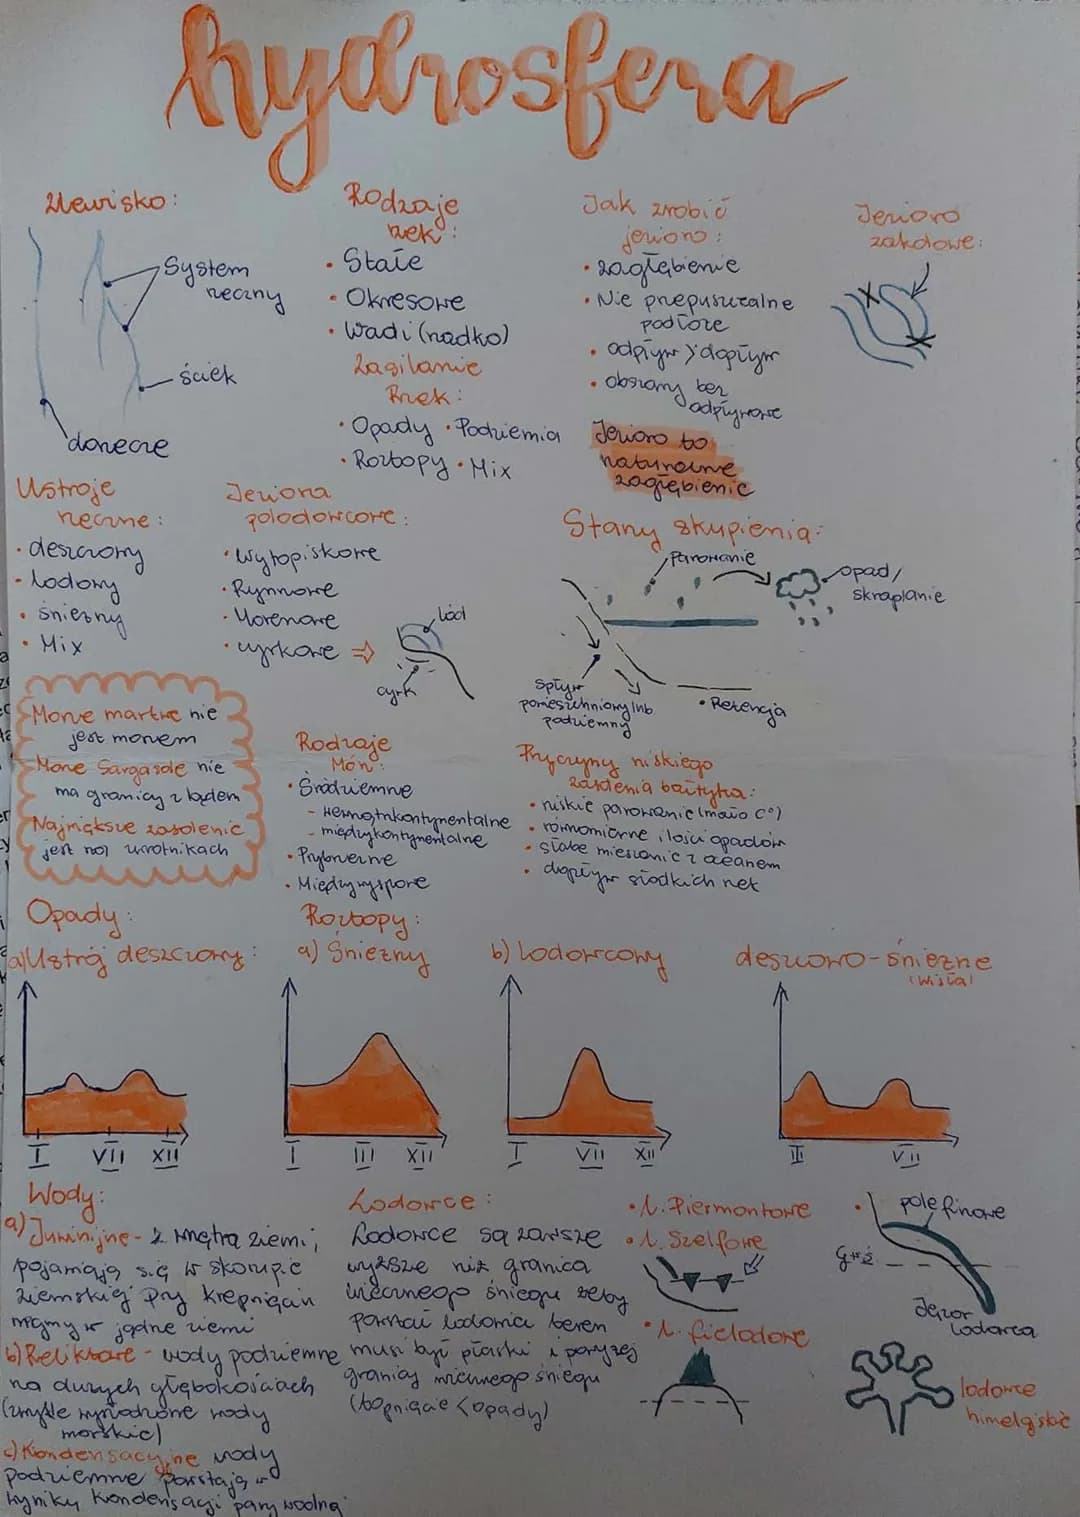 hydrosfera
Zlewisko:
System
rzeczny
ściek
dorzecze
Rodzaje
rzek:
• Stałe
• Okresowe
• Wadi (rzadko)
Zasilanie
Rzek:
• Opady • Podziemia
• Roztopy • Mix
Jak zrobić
jezioro:
• zagłębienie
• Nie przepuszczalne
podłoże
• odpływ > dopływ
• obszary bez
odpływowe
Jezioro to
naturalne
zagłębienie
Jezioro
zakolowe:
Ustroje
rzeczne:
• deszczowy
• lodowy
• śnieżny
• Mix
Jeziora
polodowcowe:
• Wytopiskowe
• Rynnowe
• Morenowe
• cyrkowe ⇒
lód
cyrk
Stany skupienia:
Parowanie
opad/
skraplanie
Spływ
powierzchniowy lub
podziemny
• Retencja
Morze martwe nie
jest morzem
Morze Sargasowe nie
ma granicy z lądem
Największe zasolenie
jest na zwrotnikach
Rodzaje
Mórz:
• Śródziemne
- wewnątrzkontynentalne
- międzykontynentalne
• Przybrzeżne
• Międzywyspowe
Przyczyny niskiego
zasolenia bałtyku:
• niskie parowanie (mało C°)
• równomierne ilości opadów
• słabe mieszanie z oceanem
• dopływ słodkich rzek
Opady:
a) Ustrój deszczowy:
I VII XII
Roztopy:
a) Śnieżny
I III XII
b) Lodowcowy
I VII XII
deszczowo-śnieżne
(Wisła)
III VII
Wody:
a) Juwenilne - z wnętrza ziemi,
pojawiają się w skorupie
ziemskiej przy krzepnięciu
magmy w jądrze ziemi
b) Reliktowe - wody podziemne
na dużych głębokościach
(zwykle wysłodzone wody
morskie)
c) Kondensacyjne wody
podziemne Powstają w
wyniku kondensacji pary wodnej
Lodowce:
Lodowce są zawsze
wyższe niż granica
wiecznego śniegu żeby
powstał lodowiec teren
musi być płaski i powyżej
granicy wiecznego śniegu
(topnięcie < opady)
• l. Piermontowe
• l. Szelfowe
• l. fieldowe
pole firnowe
Gwś
Jęzor
lodowca
lodowce
himalajskie